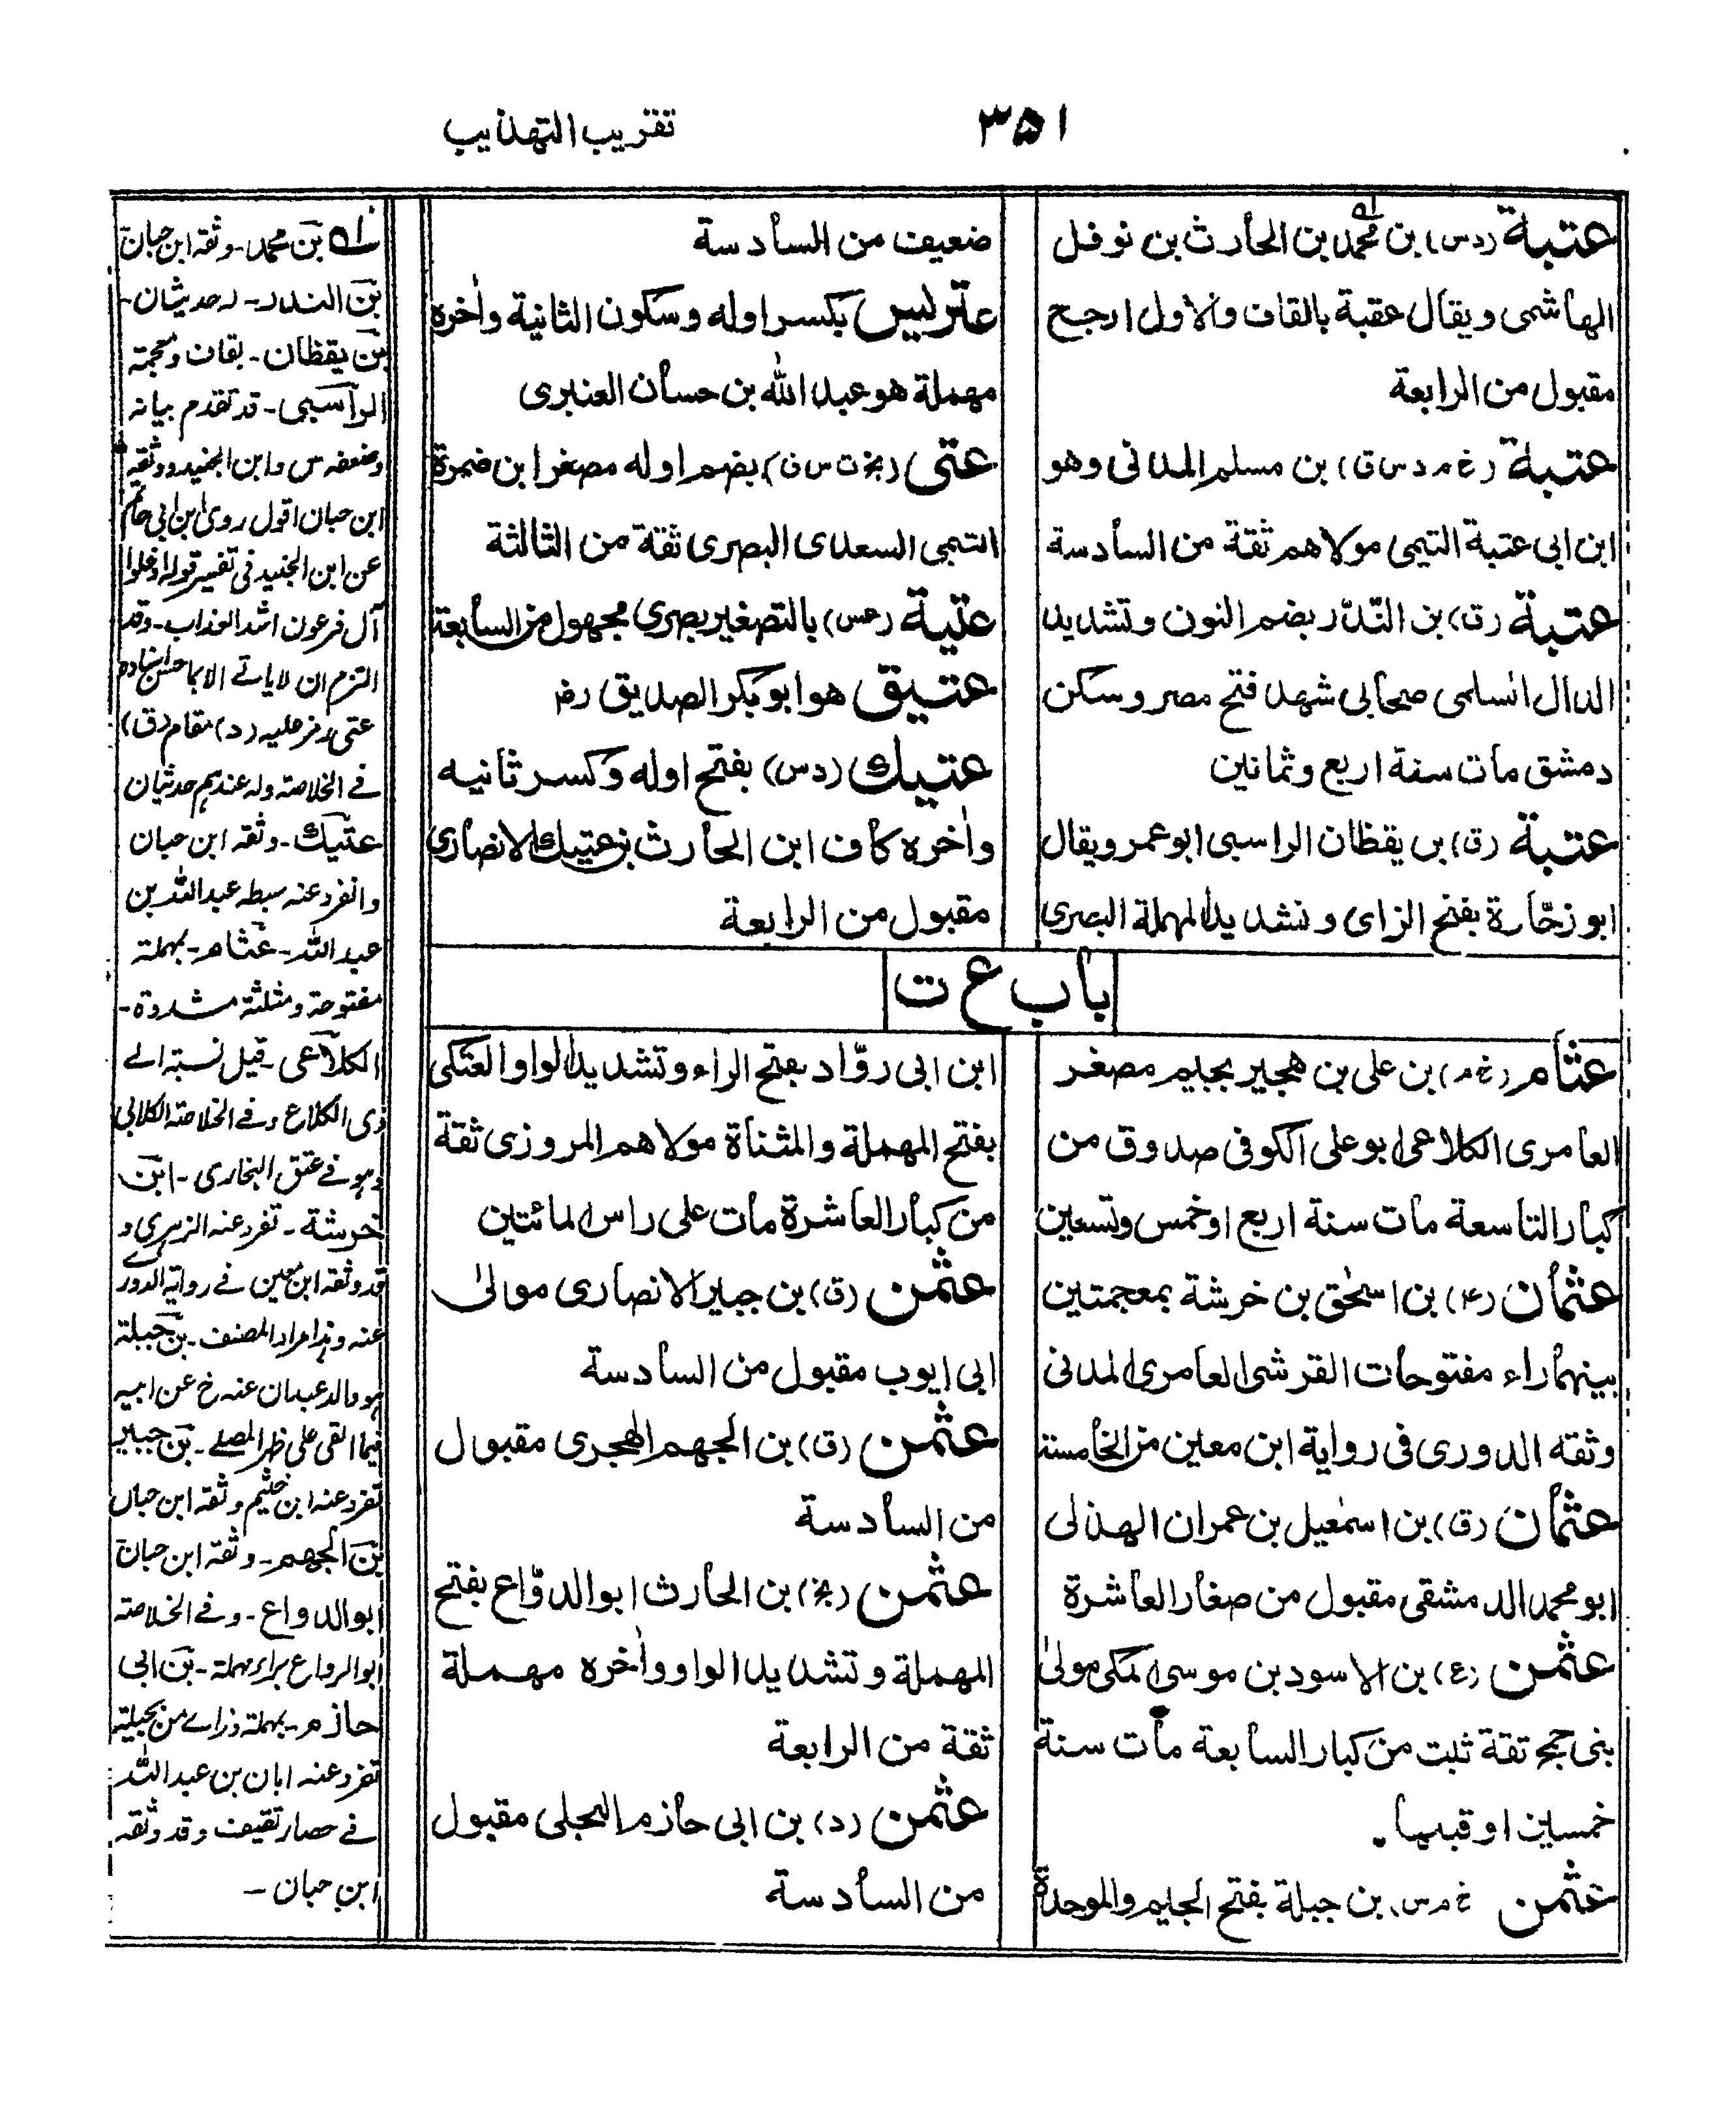 ٣٥١
تقريب التهذيب
عتبة (د س) بن محمد بن الحارث بن نوفل
الهاشمى ويقال عقبة بالقاف والاول ارجح
مقبول من الرابعة
عتبة (خ م د س ق) بن مسلم المدنى وهو
ابن ابى عتبة التيمى مولاهم ثقة من السادسة
عتبة (ق) بن النُّدَّر بضم النون وتشديد
الدال السلمى صحابى شهد فتح مصر وسكن
دمشق مات سنة اربع وثمانين
عتبة (ق) بن يقظان الراسبى ابو عمر ويقال
ابو زحّارة بفتح الزاى وتشديد المهملة البصرى
ضعيف من السادسة
عتريس بكسر اوله وسكون الثانية واخره
مهملة هو عبد الله بن حسان العنبرى
عتى (بخ ت س ق) بضم اوله مصغر ابن ضمرة
التمى السعدى البصرى ثقة من الثالثة
عتيبة (عس) بالتصغير بصرى مجهول من السابعة
عتيق هو ابو بكر الصديق رض
عتيك (د س) بفتح اوله وكسر ثانيه
واخره كاف ابن الحارث بن عتيك الانصارى
مقبول من الرابعة
باب ع ث
عثام (خ م) بن على بن هجير بجيم مصغر
العامرى الكلاعى ابو على الكوفى صدوق من
كبار التاسعة مات سنة اربع او خمس وتسعين
عثمان (٤) بن اسحٰق بن خرشة بمعجمتين
بينهما راء مفتوحات القرشى العامرى المدنى
وثقه الدورى فى رواية ابن معين من الخامسة
عثمان (ق) بن اسمٰعيل بن عمران الهذلى
ابو محمد الدمشقى مقبول من صغار العاشرة
عثمن (ع) بن الاسود بن موسى المكى مولى
بنى جمح ثقة ثبت من كبار السابعة مات سنة
خمسين او قبلها
عثمن خ م س) بن جبلة بفتح الجيم والموحدة
ابن ابى روّاد بفتح الراء وتشديد الواو العتكى
بفتح المهملة والمثناة مولاهم المروزى ثقة
من كبار العاشرة مات على راس المائتين
عثمن (ق) بن جبير الانصارى مولى
ابى ايوب مقبول من السادسة
عثمن (ق) بن الجهم الهجرى مقبول
من السادسة
عثمن (بخ) بن الحارث ابو الدوّاع بفتح
المهملة وتشديد الواو واخره مهملة
ثقة من الرابعة
عثمن (د) بن ابى حازم البجلى مقبول
من السادسة
له بن محمد - وثقه ابن حبان
بن الندر - له حديثان -
بن يقظان - بقاف ومعجمة
الراسبى - قد تقدم بيانه
وضعفه س وابن الجنيد ووثقه
ابن حبان اقول روى ابن ابى حاتم
عن ابن الجنيد فى تفسير قوله ادخلوا
آل فرعون اشد العذاب - وقد
التزم ان لا ياتے الا بما حسن اسناده
عتى رمز عليه (د) مقام (ق)
فے الخلاصة وله عندهم حديثان
عتيك - وثقه ابن حبان
وانفرد عنه سبطه عبد الله بن
عبد الله - عثام - بمهملة
مفتوحة ومثلثة مشددة -
الكلاعى - قيل نسبته الے
ذى الكلاع وفے الخلاصة الكلابى
وهو فے عتق البخارى - ابن
خرشة - تفرد عنه الزهرى و
قد وثقه ابن معين فے رواية الدورے
عنه وهذا مراد المصنف - بن جبلة
هو والد عبدان عنه خ عن ابيه
فيما القى على ظهر المصلے - بن جبير
تفرد عنه ابن خثيم وثقه ابن حبان
بن الجهم - وثقه ابن حبان
ابو الدواع - وفے الخلاصة
ابو الرواع براء مهملة - بن ابى
حازم - بمهملة وزاے من بجيلة
تفرد عنه ابان بن عبد الله
فے حصار ثقيف وقد وثقه
ابن حبان -